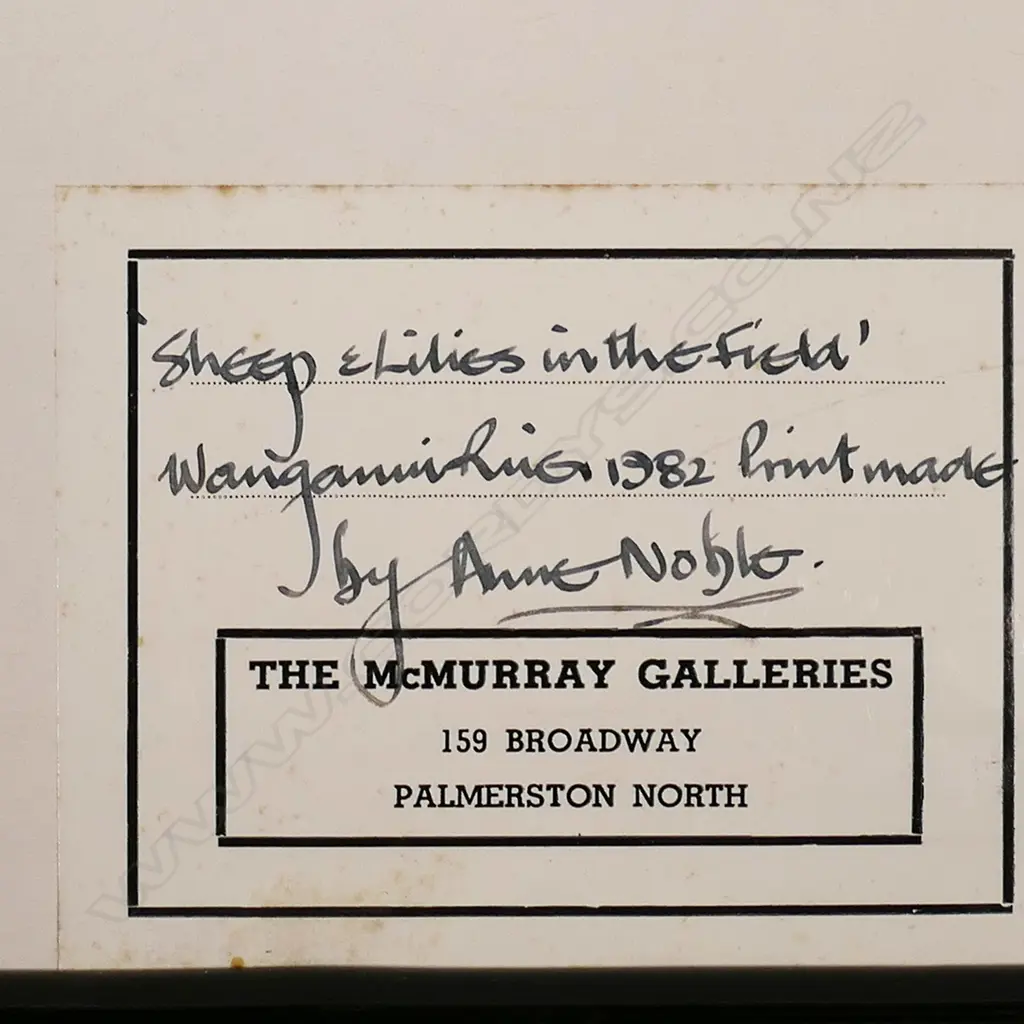 'Sheep & Lilies in the Field'
Wanganui River 1982 Print made
by Anne Noble.
THE McMURRAY GALLERIES
159 BROADWAY
PALMERSTON NORTH
WWW.CORDYS.CO.NZ